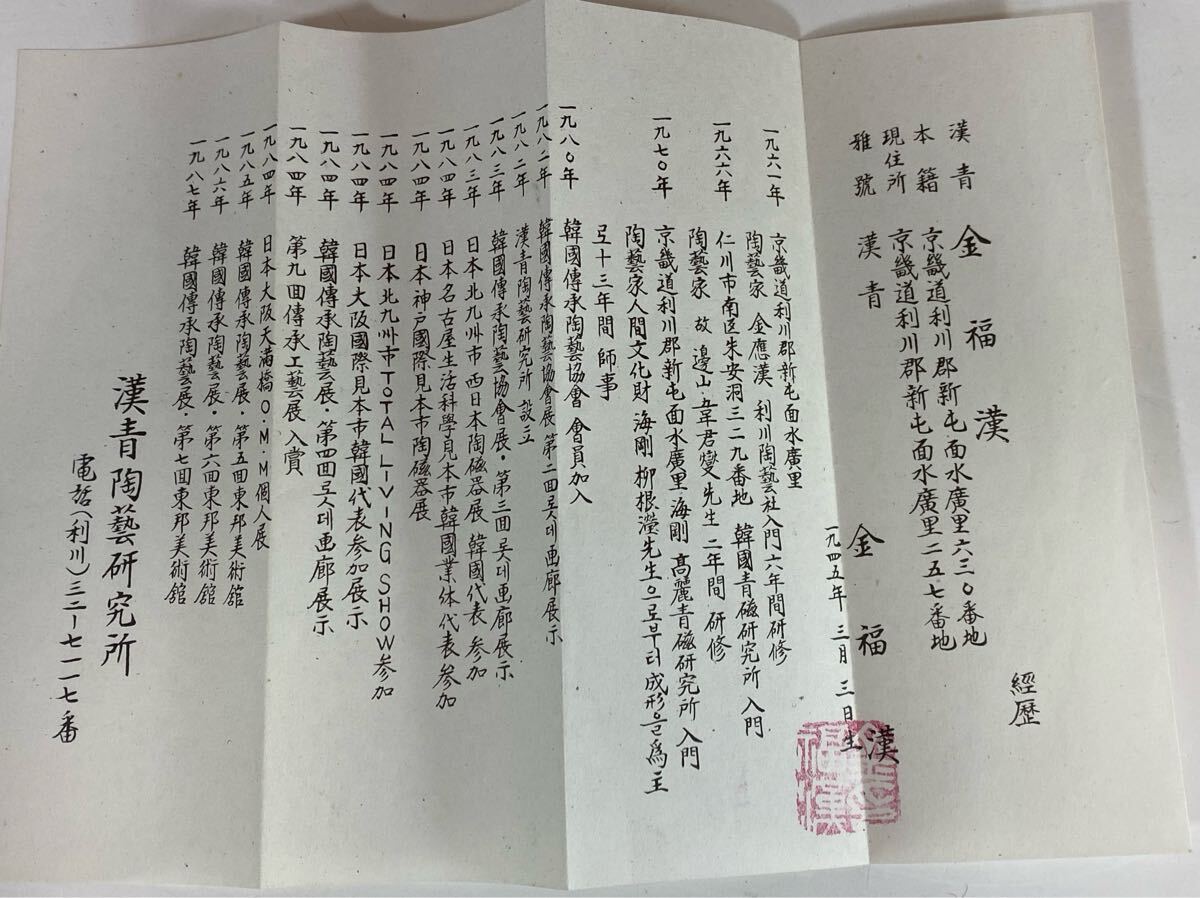 漢青 金福漢 經歷
本籍 京畿道利川郡新屯面水廣里六三〇番地
現住所 京畿道利川郡新屯面水廣里二五七番地
雅號 漢青 金福漢
一九四五年 三月 三日生
京畿道利川郡新屯面水廣里
一九六一年 陶藝家 金應漢 利川陶藝社入門六年間研修
仁川市南区朱安洞三二九番地 韓國青磁研究所 入門
一九六六年 陶藝家 故 邊山·韋君燮先生 二年間 研修
京畿道利川郡新屯面水廣里 海剛 高麗青磁研究所 入門
一九七〇年 陶藝家人間文化財 海剛 柳根瀅先生으로부터 成形을 爲主
로 十三年間 師事
一九八〇年 韓國傳承陶藝協會 會員加入
一九八二年 韓國傳承陶藝協會展 第二回롯데画廊展示
一九八二年 漢青陶藝研究所 設立
一九八三年 韓國傳承陶藝協會展·第三回롯데画廊展示
一九八三年 日本北九州市 西日本陶磁器展 韓國代表 参加
一九八四年 日本名古屋生活科學見本市韓國業体代表参加
一九八四年 日本神戸國際見本市陶磁器展
一九八四年 日本北九州市TOTAL LIVING SHOW参加
一九八四年 日本大阪國際見本市韓國代表参加展示
一九八四年 韓國傳承陶藝展·第四回롯데画廊展示
一九八四年 第九回傳承工藝展入賞
一九八四年 日本大阪天満橋O·M·M個人展
一九八五年 韓國傳承陶藝展·第五回東邦美術館
一九八六年 韓國傳承陶藝展·第六回東邦美術館
一九八七年 韓國傳承陶藝展·第七回東邦美術館
漢青陶藝研究所
電話(利川)三二-七一一七番